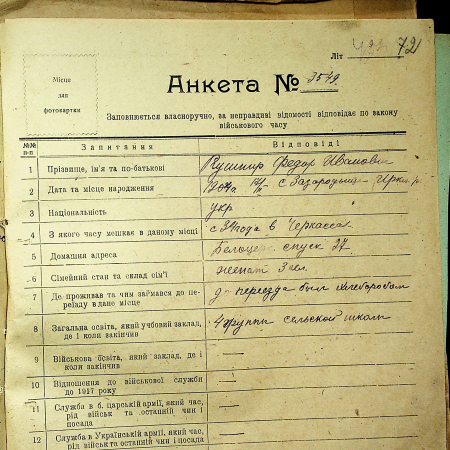 72
Літ
Місце
для
фотокартки
Анкета № 3549
Заповнюється власноручно, за неправдиві відомості відповідає по закону
військового часу
№№ п-п Запитання Відповіді
1 Прізвище, ім'я та по-батькові Кушнир Федор Иванович
2 Дата та місце народження с
3 Національність укр
4 З якого часу мешкає в даному місці с 34 года в Черкассах
5 Домашня адреса спуск 27
6 Сімейний стан та склад сім'ї женат 3
7 Де проживав та чим займався до пе-
реїзду в дане місце до переезда был хлеборобом
8 Загальна освіта, який учбовий заклад,
де і коли закінчив 4 группы сельской школы
9 Військова освіта, який заклад, де і
коли закінчив —
10 Відношення до військової служби
до 1917 року —
11 Служба в б. царській армії, який час,
рід військ та останній чин і
посада —
12 Служба в Українській армії, який час,
рід військ та останній чин і посада —